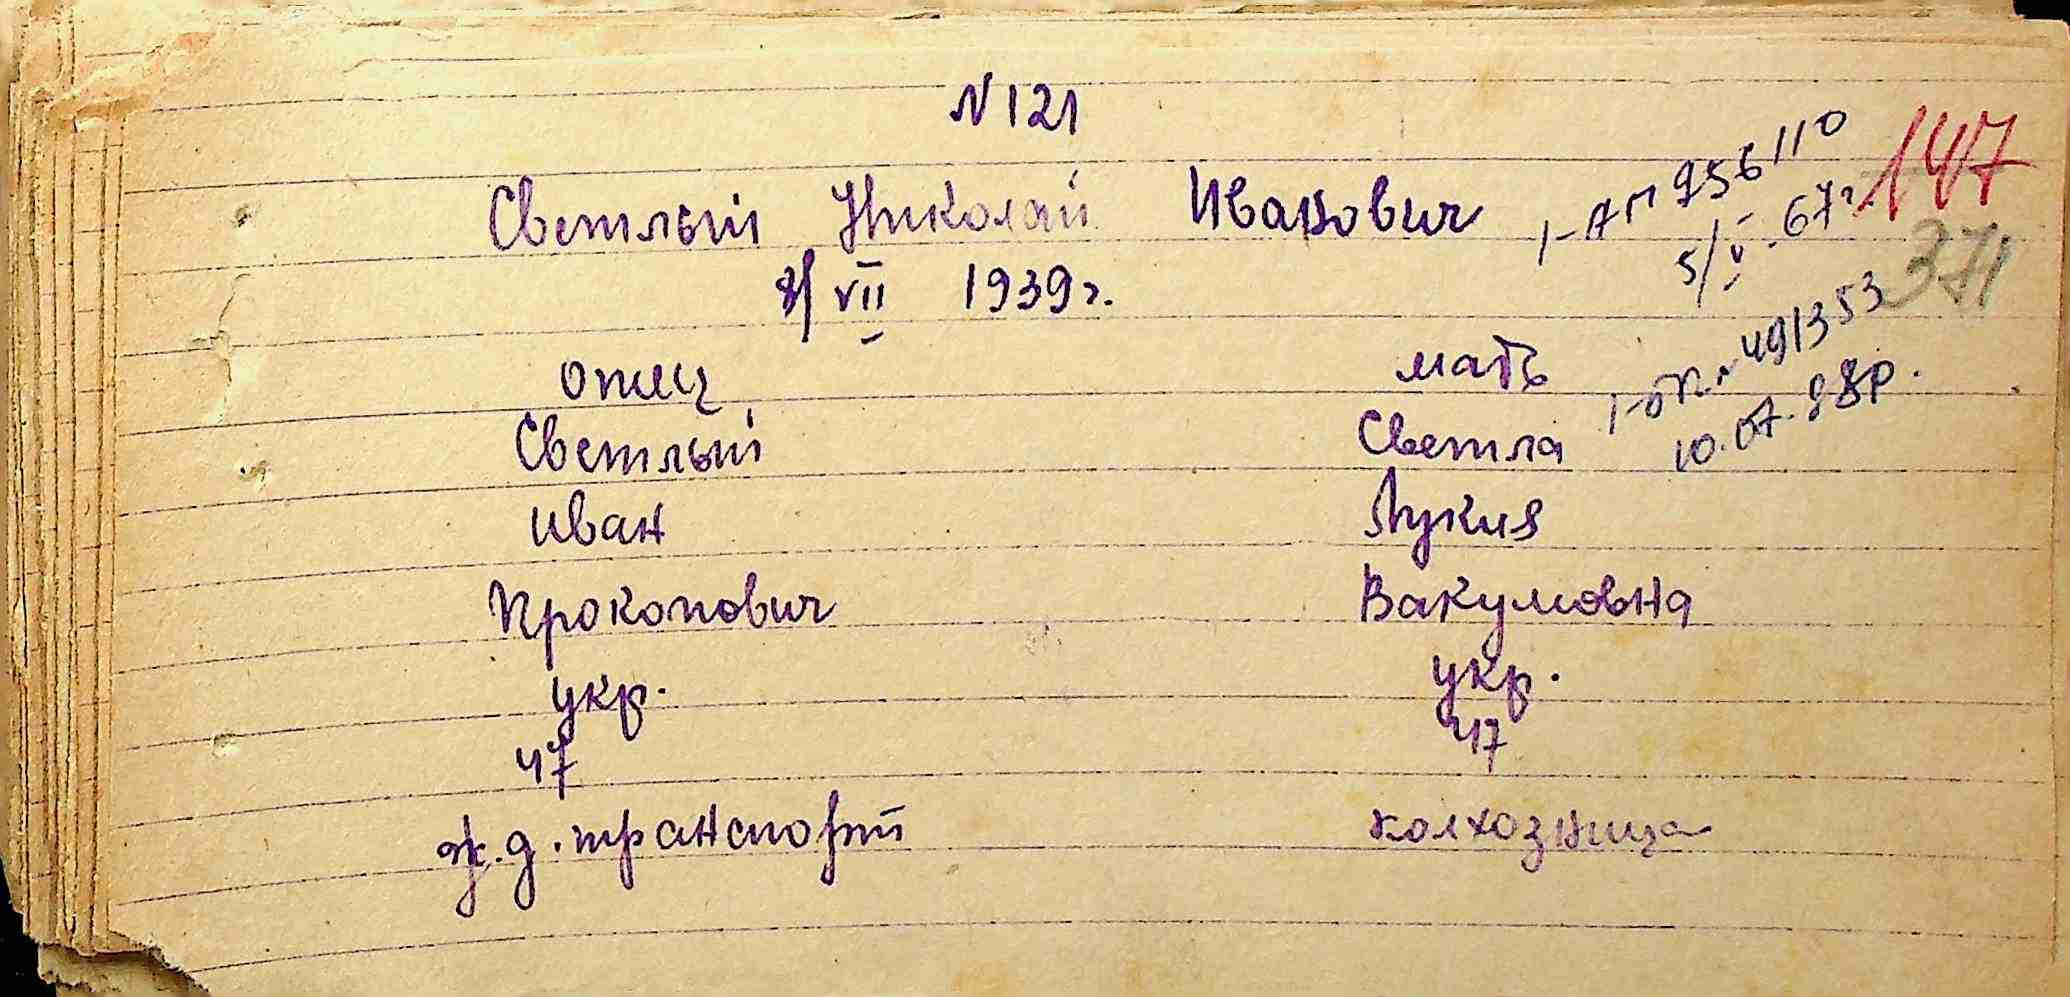 N 121
Светлый Николай Иванович
8/VII 1939 г.
I-АП 956110
5/V-67г
147
371
I-ОП N 491353
10.07.98р.
отец мать
Светлый Светла
Иван Лукия
Прокопович Вакумовна
укр. укр.
47 47
ж.д. транспорт колхозница